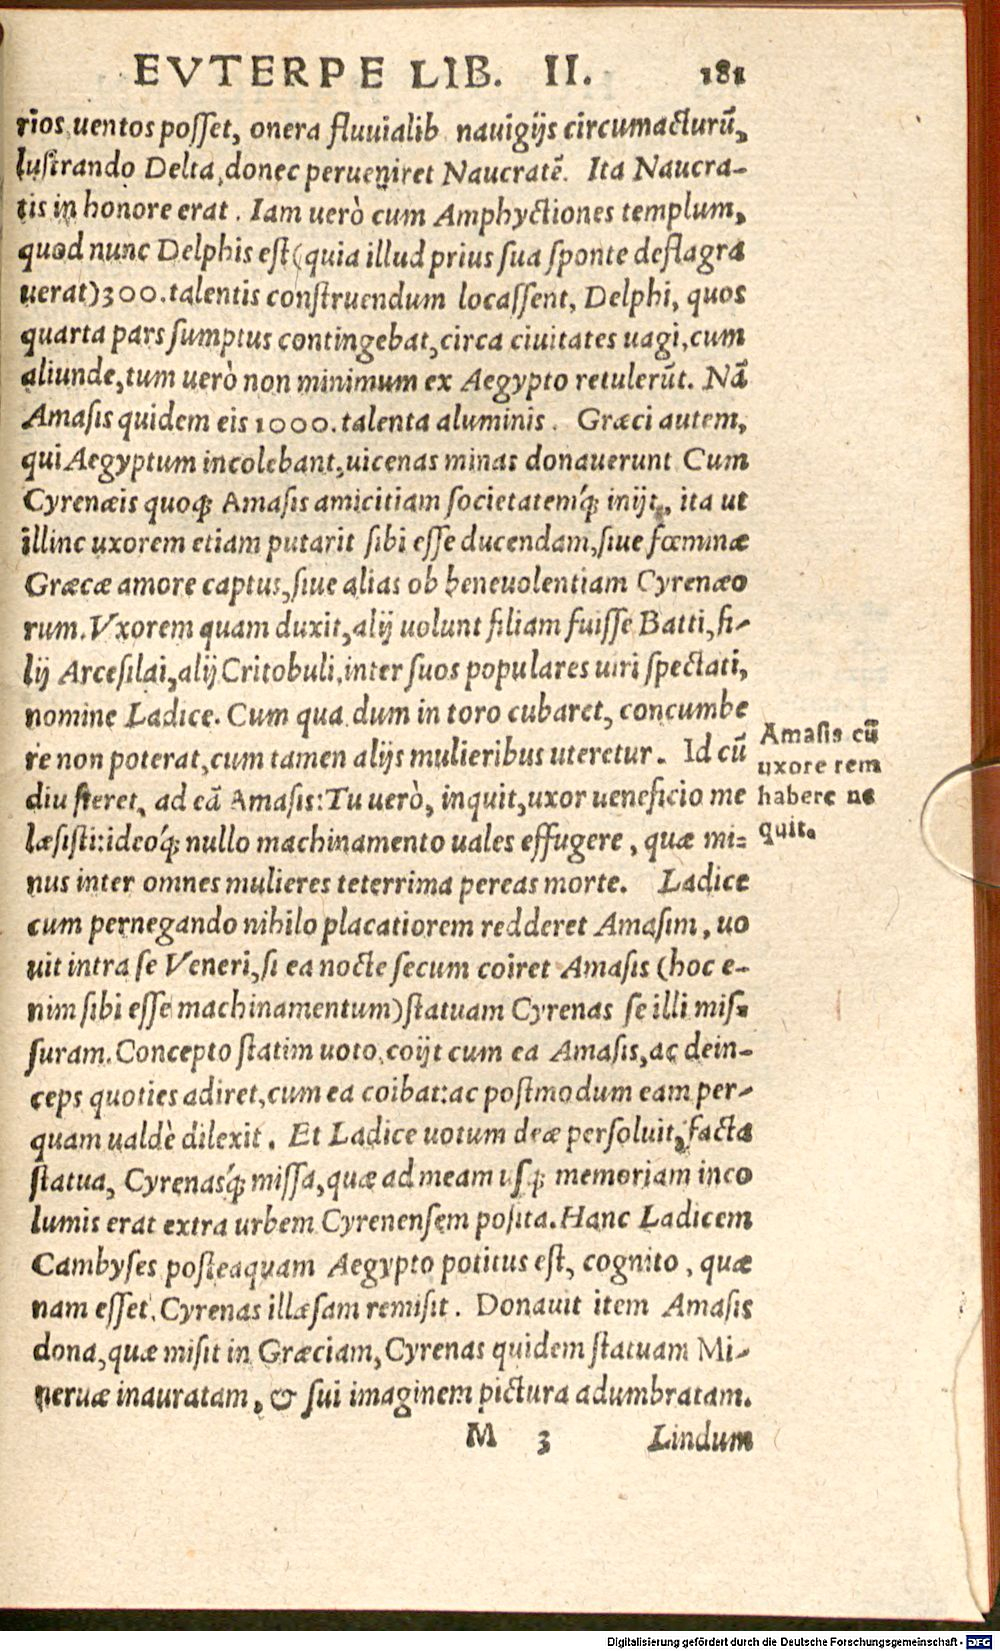 EVTERPE LIB. II. 181
rios uentos posset, onera fluuialib nauigijs circumacturũ,
lustrando Delta, donec perueniret Naucratẽ. Ita Naucra-
tis in honore erat. Iam uerò cum Amphyctiones templum,
quod nunc Delphis est (quia illud prius sua sponte deflagra
uerat) 300. talentis construendum locassent, Delphi, quos
quarta pars sumptus contingebat, circa ciuitates uagi, cum
aliunde, tum uerò non minimum ex Aegypto retulerũt. Nã
Amasis quidem eis 1000. talenta aluminis. Græci autem,
qui Aegyptum incolebant, uicenas minas donauerunt Cum
Cyrenæis quoq; Amasis amicitiam societatemq́; inijt, ita ut
illinc uxorem etiam putarit sibi esse ducendam, siue fœminæ
Græcæ amore captus, siue alias ob beneuolentiam Cyrenæo
rum. Vxorem quam duxit, alij uolunt filiam fuisse Batti, fi-
lij Arcesilai, alij Critobuli, inter suos populares uiri spectati,
nomine Ladice. Cum qua dum in toro cubaret, concumbe
re non poterat, cum tamen alijs mulieribus uteretur. Id cũ
diu fieret, ad eã Amasis: Tu uerò, inquit, uxor ueneficio me
læsisti: ideoq́; nullo machinamento uales effugere, quæ mi-
nus inter omnes mulieres teterrima pereas morte. Ladice
cum pernegando nihilo placatiorem redderet Amasim, uo
uit intra se Veneri, si ea nocte secum coiret Amasis (hoc e-
nim sibi esse machinamentum) statuam Cyrenas se illi mis-
suram. Concepto statim uoto, coijt cum ea Amasis, ac dein-
ceps quoties adiret, cum ea coibat: ac postmodum eam per-
quam ualdè dilexit. Et Ladice uotum deæ persoluit, facta
statua, Cyrenasq́; missa, quæ ad meam usq; memoriam inco
lumis erat extra urbem Cyrenensem posita. Hanc Ladicem
Cambyses posteaquam Aegypto potitus est, cognito, quæ
nam esset, Cyrenas illæsam remisit. Donauit item Amasis
dona, quæ misit in Græciam, Cyrenas quidem statuam Mi-
neruæ inauratam, & sui imaginem pictura adumbratam.
M 3 Lindum
Amasis cũ
uxore rem
habere ne
quit.
Digitalisierung gefördert durch die Deutsche Forschungsgemeinschaft - DFG